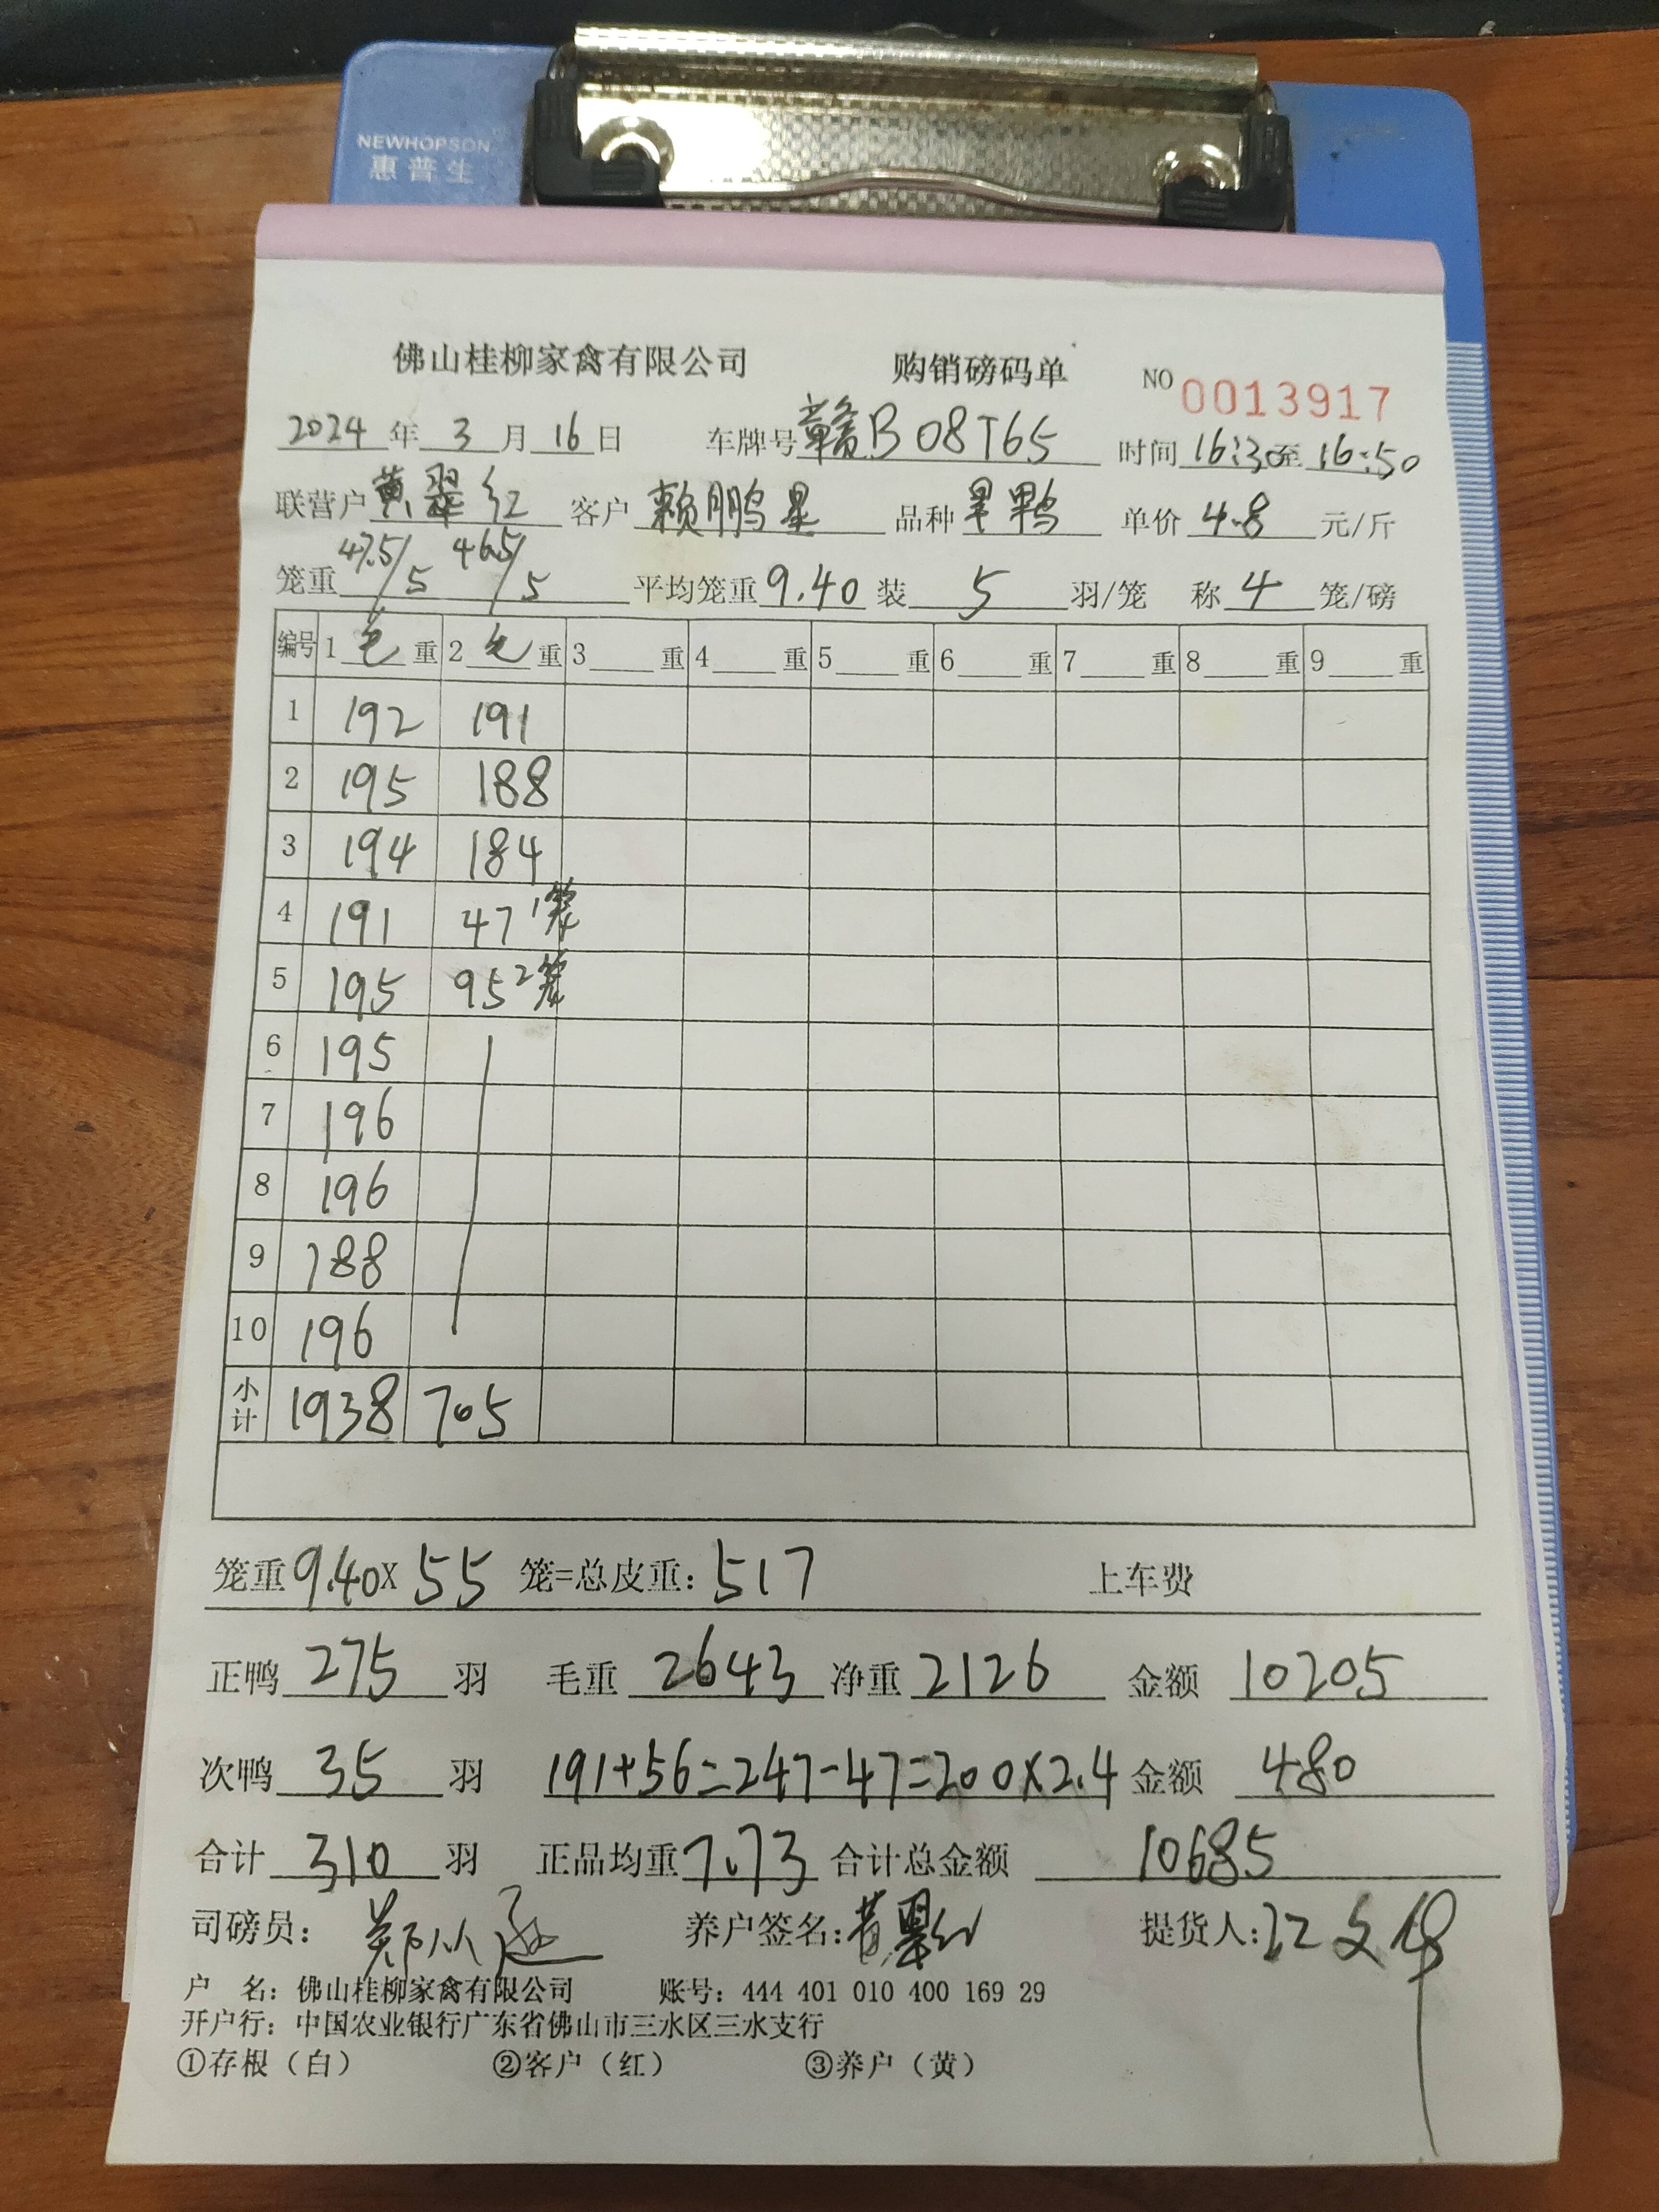 NEWHOPSON
惠普生
佛山桂柳家禽有限公司 购销磅码单 NO 0013917
2024年3月16日 车牌号赣B08T65 时间16:30至16:50
联营户黄翠红 客户赖鹏星 品种 单价4.8元/斤
笼重47.5/5 46.5/5 平均笼重9.40装5羽/笼 称4笼/磅
编号 1毛重 2毛重 3重 4重 5重 6重 7重 8重 9重
1 192 191
2 195 188
3 194 184
4 191 47 1笼
5 195 95 2笼
6 195
7 196
8 196
9 188
10 196
小计 1938 705
笼重9.40X55笼=总皮重:517 上车费
正鸭275羽 毛重2643净重2126 金额10205
次鸭35羽 191+56=247-47=200X2.4金额480
合计310羽 正品均重7.73合计总金额10685
司磅员: 养户签名:黄翠红 提货人:江文华
户 名:佛山桂柳家禽有限公司 账号:444 401 010 400 169 29
开户行:中国农业银行广东省佛山市三水区三水支行
①存根(白) ②客户(红) ③养户(黄)